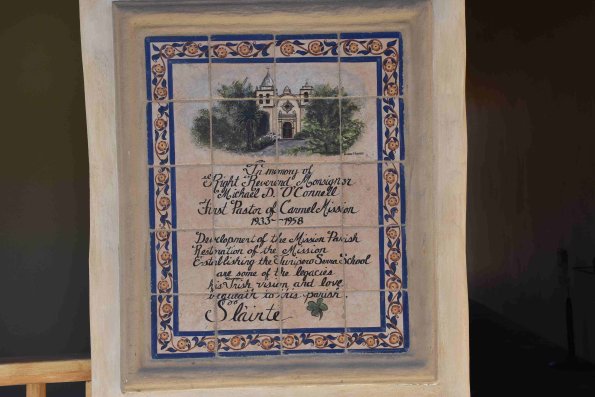 In memory of
Right Reverend Monsignor
Michael D. O'Connell
First Pastor of Carmel Mission
1933-1958
Development of the Mission Parish
Restoration of the Mission
Establishing the Junipero Serra School
are some of the legacies
his Irish vision and love
bequeath to his parish.
Slainte